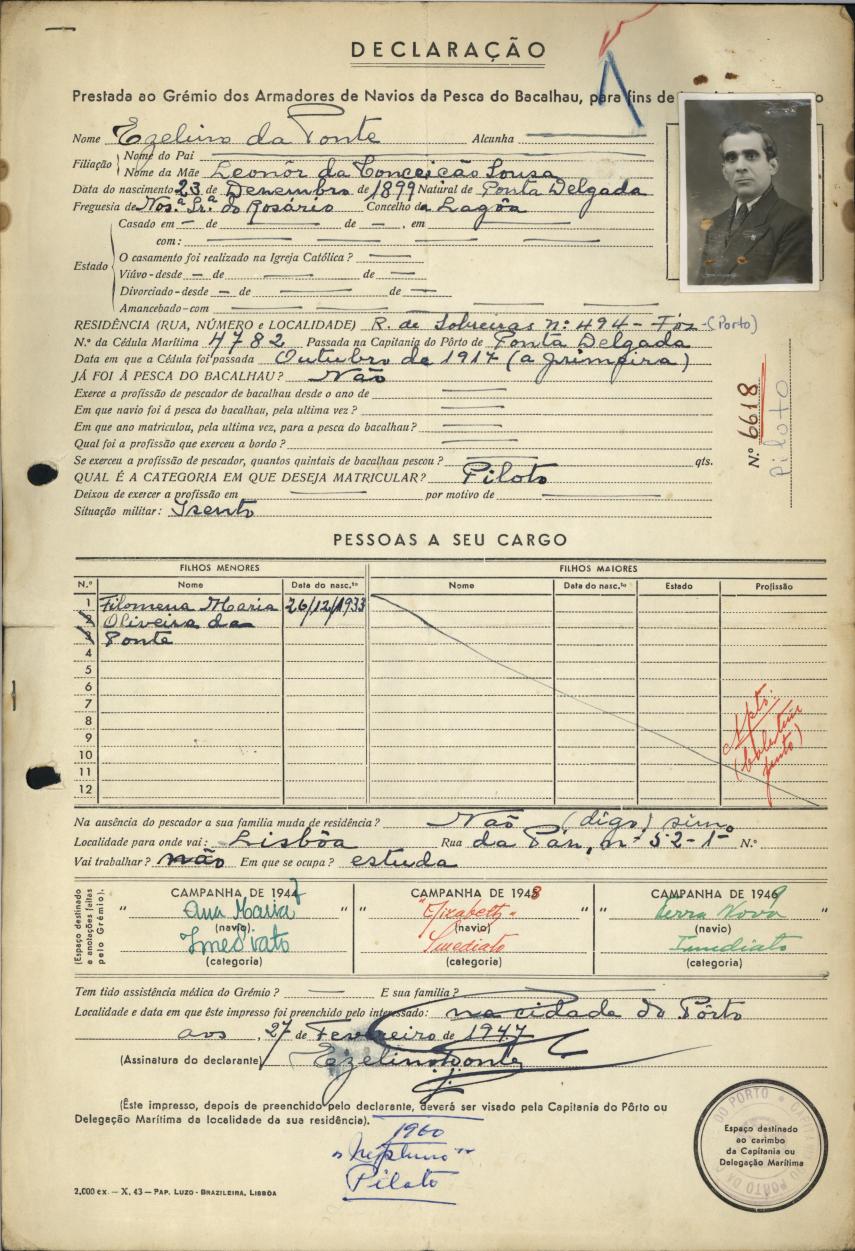 DECLARAÇÃO
Prestada ao Grémio dos Armadores de Navios da Pesca do Bacalhau, para fins de
Nome Ezelino da Ponte Alcunha
Filiação Nome do Pai
Nome da Mãe Leonôr da Conceição Sousa
Data do nascimento 23 de Dezembro de 1899 Natural de Ponta Delgada
Freguesia de Nos.ª Sr.ª do Rosário Concelho da Lagôa
Casado em de de , em
com:
Estado O casamento foi realizado na Igreja Católica?
Viúvo-desde de de
Divorciado-desde de de
Amancebado-com
RESIDÊNCIA (RUA, NÚMERO e LOCALIDADE) R. de Sobreiras nº 494 - Foz - (Porto)
N.º da Cédula Marítima 4782 Passada na Capitania do Pôrto de Ponta Delgada
Data em que a Cédula foi passada Outubro de 1917 (a primeira)
JÁ FOI À PESCA DO BACALHAU? Não
Exerce a profissão de pescador de bacalhau desde o ano de
Em que navio foi á pesca do bacalhau, pela ultima vez?
Em que ano matriculou, pela ultima vez, para a pesca do bacalhau?
Qual foi a profissão que exerceu a bordo?
Se exerceu a profissão de pescador, quantos quintais de bacalhau pescou? qts.
QUAL É A CATEGORIA EM QUE DESEJA MATRICULAR? Piloto
Deixou de exercer a profissão em por motivo de
Situação militar: Isento
N.º 6618
Piloto
PESSOAS A SEU CARGO
FILHOS MENORES FILHOS MAIORES
N.º Nome Data do nasc.to Nome Data do nasc.to Estado Profissão
1 Filomena Maria 26/12/1933
2 Oliveira da
3 Ponte
4
5
6
7
8
9
10
11
12
Apto:
Na ausência do pescador a sua familia muda de residência? Não (digo) sim
Localidade para onde vai: Lisbôa Rua da nº 52-1º N.º
Vai trabalhar? não Em que se ocupa? estuda
(Espaço destinado a anotações feitas pelo Grémio).
CAMPANHA DE 1947 CAMPANHA DE 1948 CAMPANHA DE 1949
" Ana Maria " " Elizabeth " Terra Nova "
(navio) (navio) (navio)
Imediato Imediato Imediato
(categoria) (categoria) (categoria)
Tem tido assistência médica do Grémio? E sua família?
Localidade e data em que êste impresso foi preenchido pelo interessado: na cidade do Pôrto
aos , 27 de Fevereiro de 1947
(Assinatura do declarante) Ezelino Ponte
(Êste impresso, depois de preenchido pelo declarante, deverá ser visado pela Capitania do Pôrto ou
Delegação Marítima da localidade da sua residência).
1960
"Neptuno"
Piloto
Espaço destinado
ao carimbo
da Capitania ou
Delegação Marítima
2,000 ex. — X. 43 — PAP. LUZO-BRAZILEIRA, LISBÔA